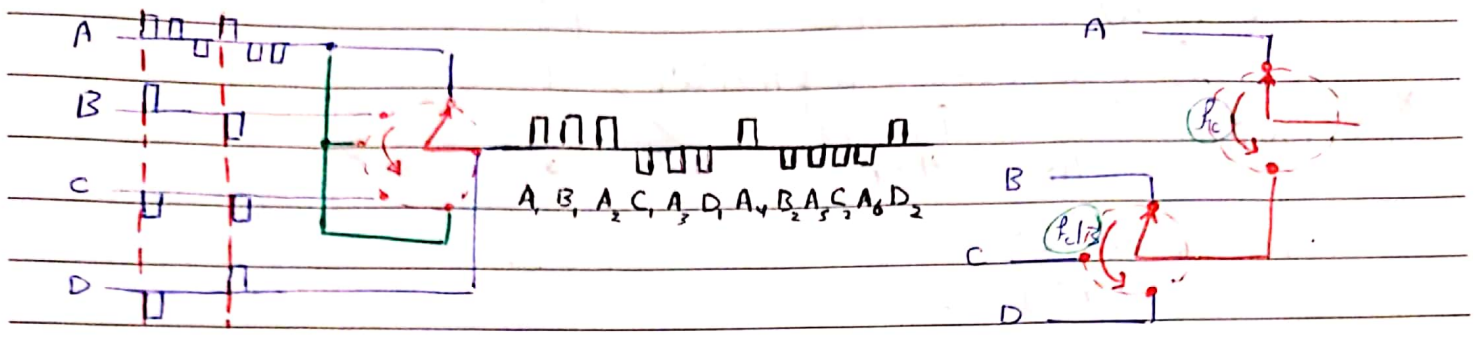 A
B
C
D
A₁ B₁ A₂ C₁ A₃ D₁ A₄ B₂ A₅ C₂ A₆ D₂
A
fc
B
fc/3
C
D